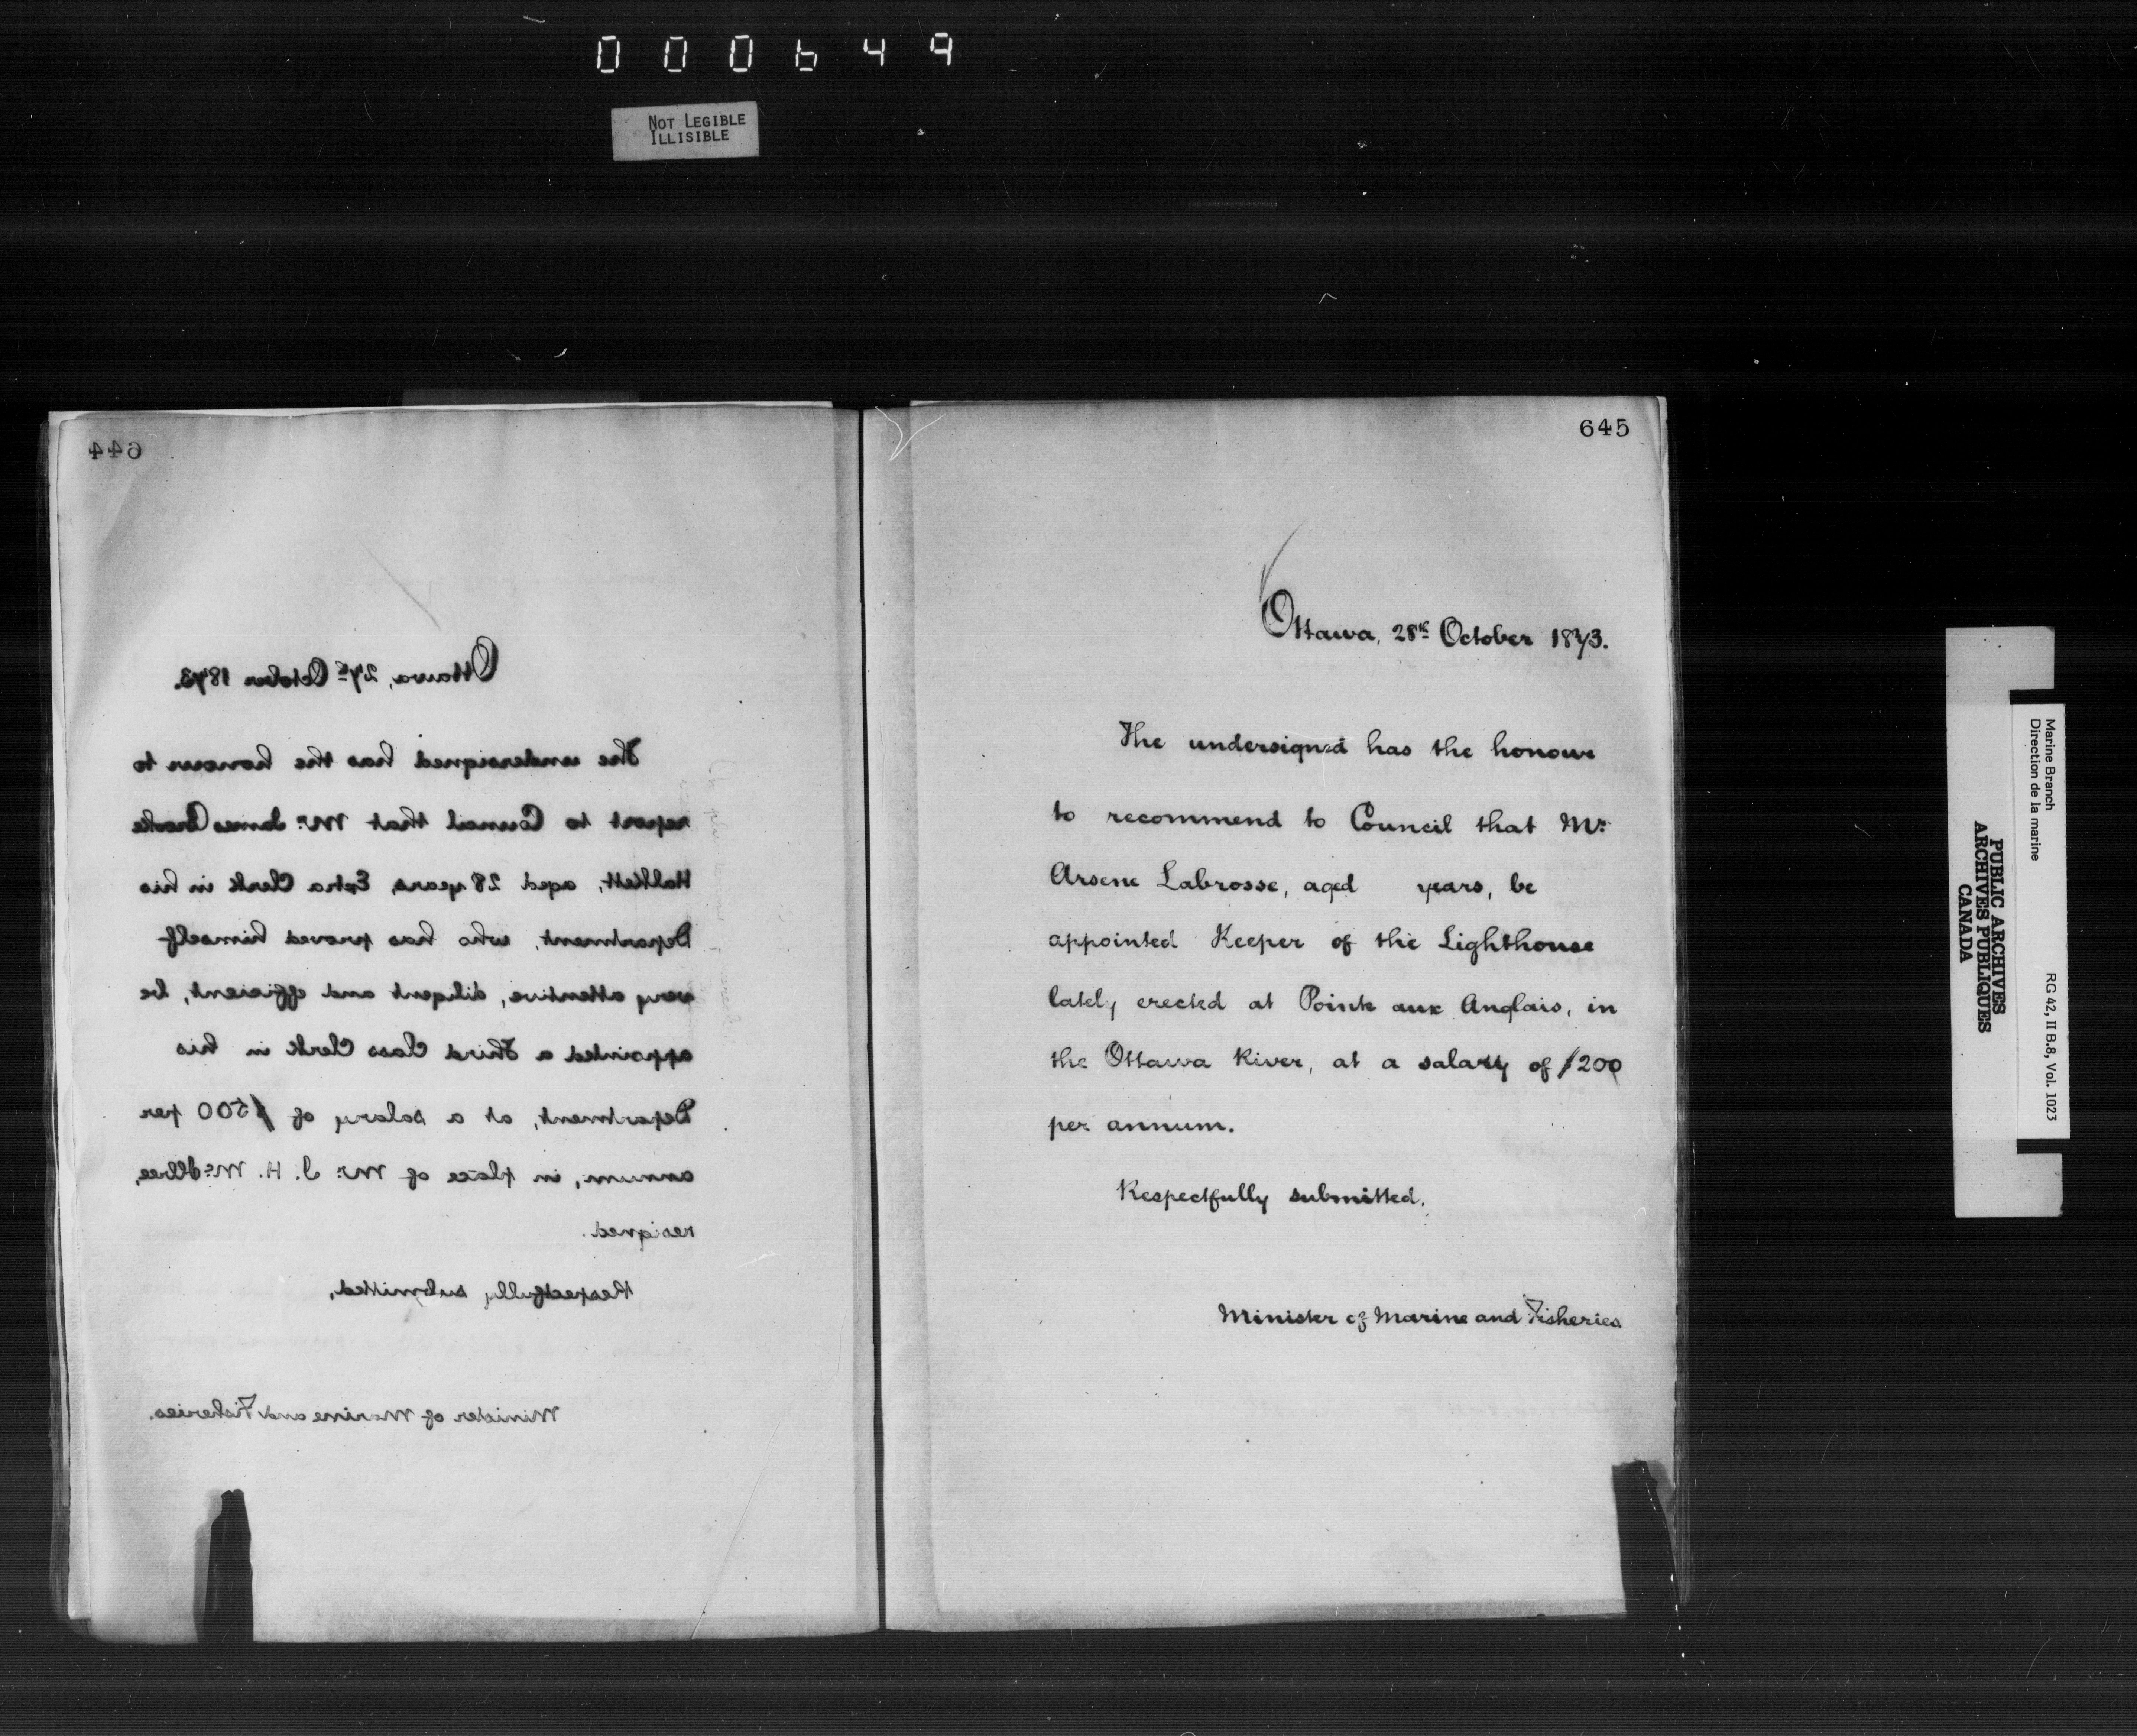 000649
NOT LEGIBLE
ILLISIBLE
644
Ottawa, 27th October 1873.
The undersigned has the honour to
report to Council that Mr. James Brooke
Halkett, aged 28 years, Extra Clerk in his
Department, who has proved himself
very attentive, diligent and efficient, be
appointed a Third Class Clerk in his
Department, at a salary of $500 per
annum, in place of Mr. J. H. McIlree,
resigned.
Respectfully submitted,
Minister of Marine and Fisheries.
645
Ottawa, 28th October 1873.
The undersigned has the honour
to recommend to Council that Mr.
Arsene Labrosse, aged years, be
appointed Keeper of the Lighthouse
lately erected at Pointe aux Anglais, in
the Ottawa River, at a salary of $200
per annum.
Respectfully submitted.
Minister of Marine and Fisheries
Marine Branch
Direction de la marine
RG 42, II B.8, Vol. 1023
PUBLIC ARCHIVES
ARCHIVES PUBLIQUES
CANADA